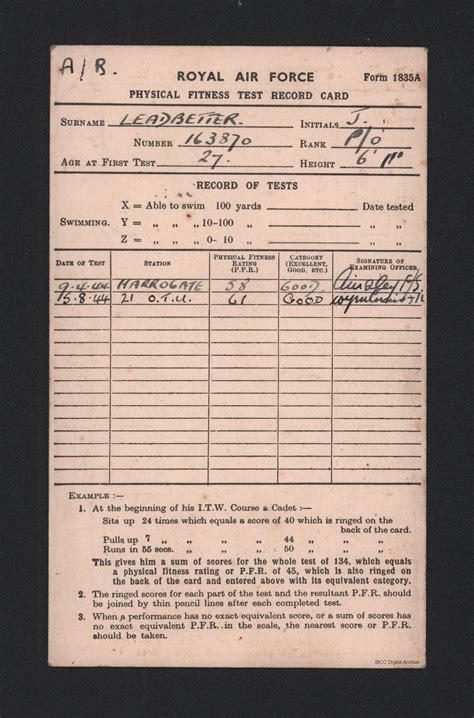 A/B.
ROYAL AIR FORCE Form 1835A
PHYSICAL FITNESS TEST RECORD CARD
SURNAME LEADBETTER. INITIALS J.
NUMBER 163870 RANK P/O
AGE AT FIRST TEST 27. HEIGHT 6'
RECORD OF TESTS
X = Able to swim 100 yards Date tested
SWIMMING. Y = „ „ „ 10-100 „ „ „
Z = „ „ „ 0- 10 „ „ „
DATE OF TEST STATION PHYSICAL FITNESS RATING (P.F.R.) CATEGORY (EXCELLENT, GOOD, ETC.) SIGNATURE OF EXAMINING OFFICER
9.4.44 HARROGATE 58 GOOD
15.8.44 21 O.T.U. 61 GOOD
EXAMPLE :—
1. At the beginning of his I.T.W. Course a Cadet :—
Sits up 24 times which equals a score of 40 which is ringed on
the back of the card.
Pulls up 7 „ „ „ 44 „ „
Runs in 55 secs. „ „ 50 „ „
This gives him a sum of scores for the whole test of 134, which equals
a physical fitness rating or P.F.R. of 45, which is also ringed on
the back of the card and entered above with its equivalent category.
2. The ringed scores for each part of the test and the resultant P.F.R. should
be joined by thin pencil lines after each completed test.
3. When a performance has no exact equivalent score, or a sum of scores has
no exact equivalent P.F.R. in the scale, the nearest score or P.F.R.
should be taken.
IBCC Digital Archive